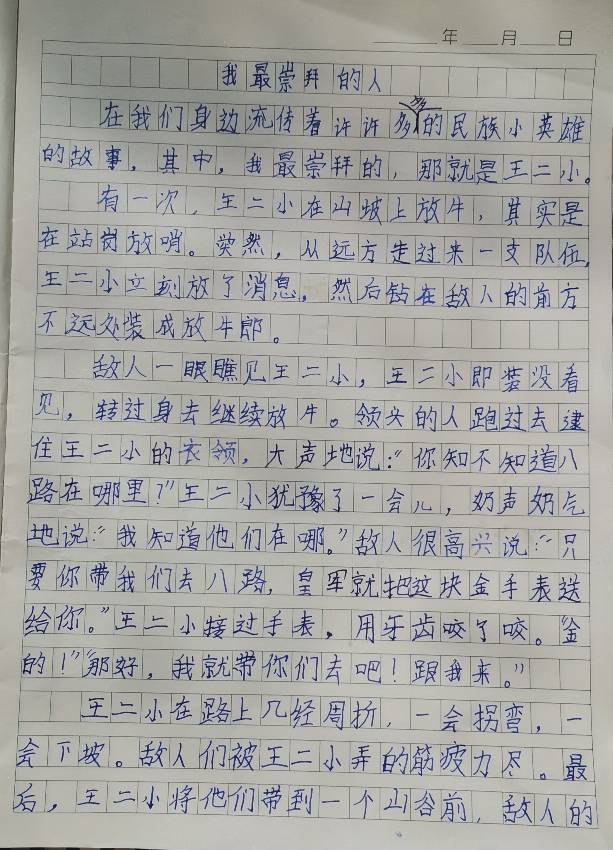 年 月 日
我最崇拜的人
在我们身边流传着许许多多的民族小英雄
的故事，其中，我最崇拜的，那就是王二小。
有一次，王二小在山坡上放牛，其实是
在站岗放哨。突然，从远方走过来一支队伍，
王二小立刻放了消息，然后钻在敌人的前方
不远处装成放牛郎。
敌人一眼瞧见王二小，王二小即装没看
见，转过身去继续放牛。领头的人跑过去逮
住王二小的衣领，大声地说：“你知不知道八
路在哪里？”王二小犹豫了一会儿，奶声奶气
地说：“我知道他们在哪。”敌人很高兴说：“只
要你带我们去八路，皇军就把这块金手表送
给你。”王二小接过手表，用牙齿咬了咬。“金
的！”“那好，我就带你们去吧！跟我来。”
王二小在路上几经周折，一会拐弯，一
会下坡。敌人们被王二小弄的筋疲力尽。最
后，王二小将他们带到一个山谷前，敌人的